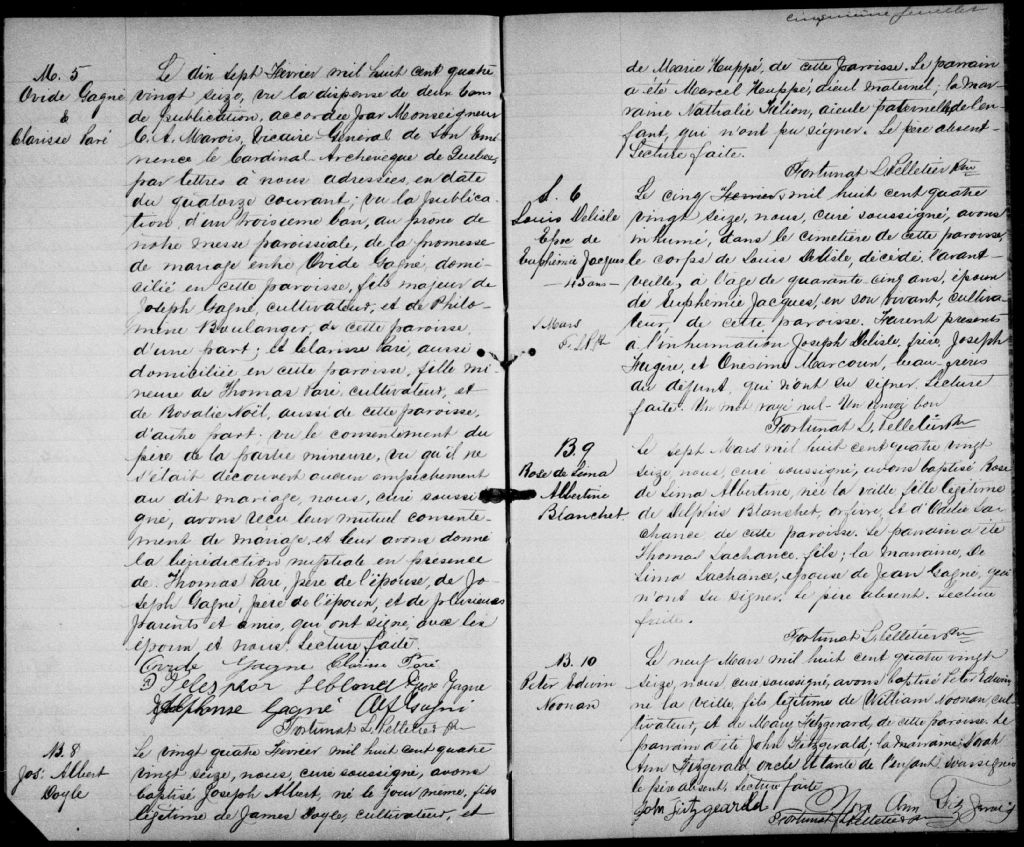 M. 5
Ovide Gagné
&
Clarisse Paré
Le dix sept Février mil huit cent quatre
vingt seize, vu la dispense de deux bans
de publication, accordée par Monseigneur
C. A. Marois, Vicaire Général de Son Emi-
nence le Cardinal Archevêque de Quebec,
par lettres à nous adressées, en date
du quatorze courant; vu la publica-
tion d'un troisième ban, au prone de
notre messe paroissiale, de la promesse
de mariage entre Ovide Gagné, domi-
cilié en cette paroisse, fils majeur de
Joseph Gagné, cultivateur, et de Philo-
mène Boulanger, de cette paroisse,
d'une part; et Clarisse Paré, aussi
domiciliée en cette paroisse, fille mi-
neure de Thomas Paré, cultivateur, et
de Rosalie Noël, aussi de cette paroisse,
d'autre part; vu le consentement du
père de la partie mineure, vu qu'il ne
s'était découvert aucun empêchement
au dit mariage, nous, curé soussi-
gné, avons reçu leur mutuel consente-
ment de mariage, et leur avons donné
la bénédiction nuptiale en présence
de Thomas Paré, père de l'épouse, de Jo-
seph Gagné, père de l'époux, et de plusieurs
parents et amis, qui ont signé avec les
époux et nous. Lecture faite.
Ovide Gagne Clarisse Paré
Telesphor Leblond Gagne
Gagné Alf Gagné
Fortunat L. Pelletier Ptre
B. 8
Jos. Albert
Doyle
Le vingt quatre Février mil huit cent quatre
vingt seize, nous, curé soussigné, avons
baptisé Joseph Albert, né le jour même, fils
légitime de James Doyle, cultivateur, et
cinquième feuillet
de Marie Huppé, de cette paroisse. Le parrain
a été Marcel Huppé, aïeul maternel; la mar-
raine Nathalie, aïeule paternelle de l'en-
fant, qui n'ont pu signer. Le père absent-
Lecture faite.
Fortunat L. Pelletier Ptre
S. 6
Louis Delisle
Epx de
Euphémie Jacques
- 45 ans -
Mars
F. L. P. ptr
Le cinq Fevrier mil huit cent quatre
vingt seize, nous, curé soussigné, avons
inhumé, dans le cimetière de cette paroisse,
le corps de Louis Delisle, décédé, l'avant-
veille, à l'age de quarante cinq ans, époux
de Euphémie Jacques, en son vivant, cultiva-
teur, de cette paroisse. Furent presents
à l'inhumation Joseph Delisle, frère, Joseph
et Onesime Marcoux, beau-frères
du défunt, qui n'ont su signer. Lecture
faite. Un mot rayé nul - Un envoi bon
Fortunat L. Pelletier Ptr
B. 9
Rose de Lima
Albertine
Blanchet
Le sept Mars mil huit cent quatre vingt
seize, nous, curé soussigné, avons baptisé Rose
de Lima Albertine, née la veille, fille légitime
de Delphis Blanchet, orfèvre, et d'Odélie La-
chance, de cette paroisse. Le parrain a été
Thomas Lachance, fils; la marraine, De
Lima Lachance, épouse de Jean Gagné, qui
n'ont su signer. Le père absent. Lecture
faite.
Fortunat L. Pelletier Ptre
B. 10
Peter Edwin
Noonan
Le neuf Mars mil huit cent quatre vingt
seize, nous, curé soussigné, avons baptisé Peter Edwin,
né la veille, fils légitime de William Noonan, cul-
tivateur, et de Mary Fitzgerard, de cette paroisse. Le
parrain a été John Fitzgerald; la marraine Sarah
Ann Fitzgerald oncle et tante de l'enfant soussignés
le père absent, lecture faite
John Fitzgeardd
Ann Fitz
Fortunat L. Pelletier ptr